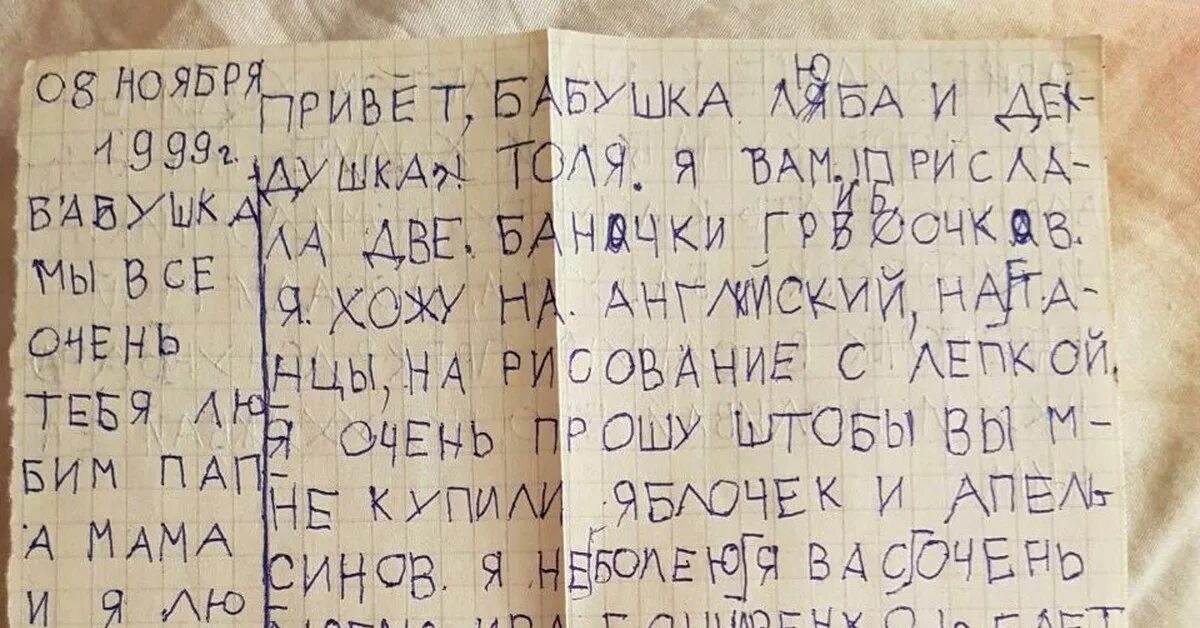 08 НОЯБРЯ
1999г.
БАБУШКА
МЫ ВСЕ
ОЧЕНЬ
ТЕБЯ ЛЮ-
БИМ ПАП-
А МАМА
И Я ЛЮ
ПРИВЕТ, БАБУШКА ЛЮБА И ДЕ-
ДУШКА ТОЛЯ. Я ВАМ. ПРИСЛА-
ЛА ДВЕ. БАНОЧКИ ГРИБОЧКОВ.
Я. ХОЖУ НА. АНГЛИЙСКИЙ, НА ТА-
НЦЫ, НА РИСОВАНИЕ С ЛЕПКОЙ.
Я ОЧЕНЬ ПРОШУ ШТОБЫ ВЫ М-
НЕ КУПИЛИ ЯБЛОЧЕК И АПЕЛЬ
СИНОВ. Я НЕ БОЛЕЮ Я ВАС ОЧЕНЬ